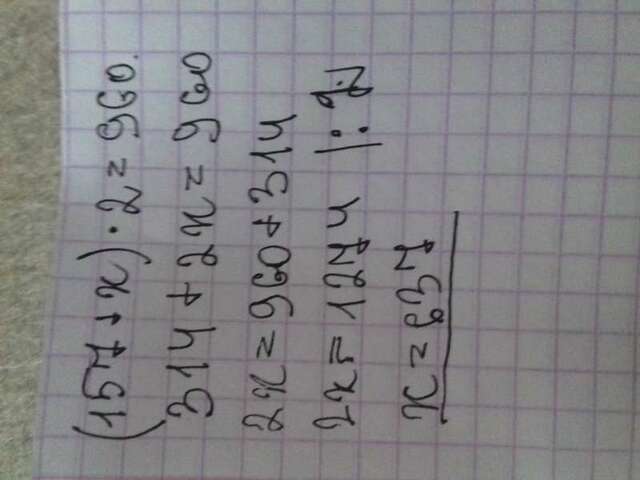 (157+x)·2=960.
314+2x=960
2x=960+314
2x=1274 |:2
x=637